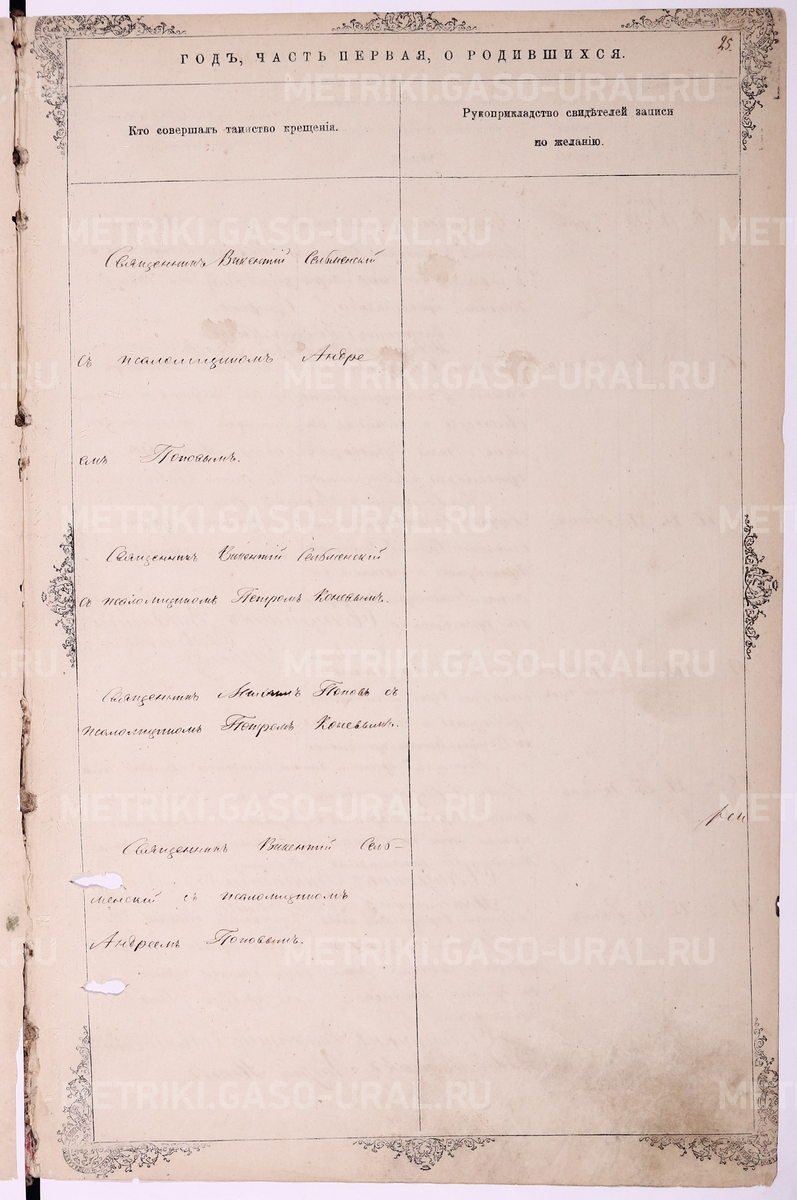 25
ГОДЪ, ЧАСТЬ ПЕРВАЯ, О РОДИВШИХСЯ.
Кто совершалъ таинство крещенія.
Рукоприкладство свидѣтелей записи
по желанію.
Священникъ Викентій Сельменскій
съ псаломщикомъ Андре
емъ Поповымъ.
Священникъ Викентій Сельменскій
съ псаломщикомъ Петромъ Коневымъ.
Священникъ Поповъ съ
псаломщикомъ Петромъ Коневымъ.
Священникъ Викентій Сель-
менскій съ псаломщикомъ
Андреемъ Поповымъ.
METRIKI.GASO-URAL.RU